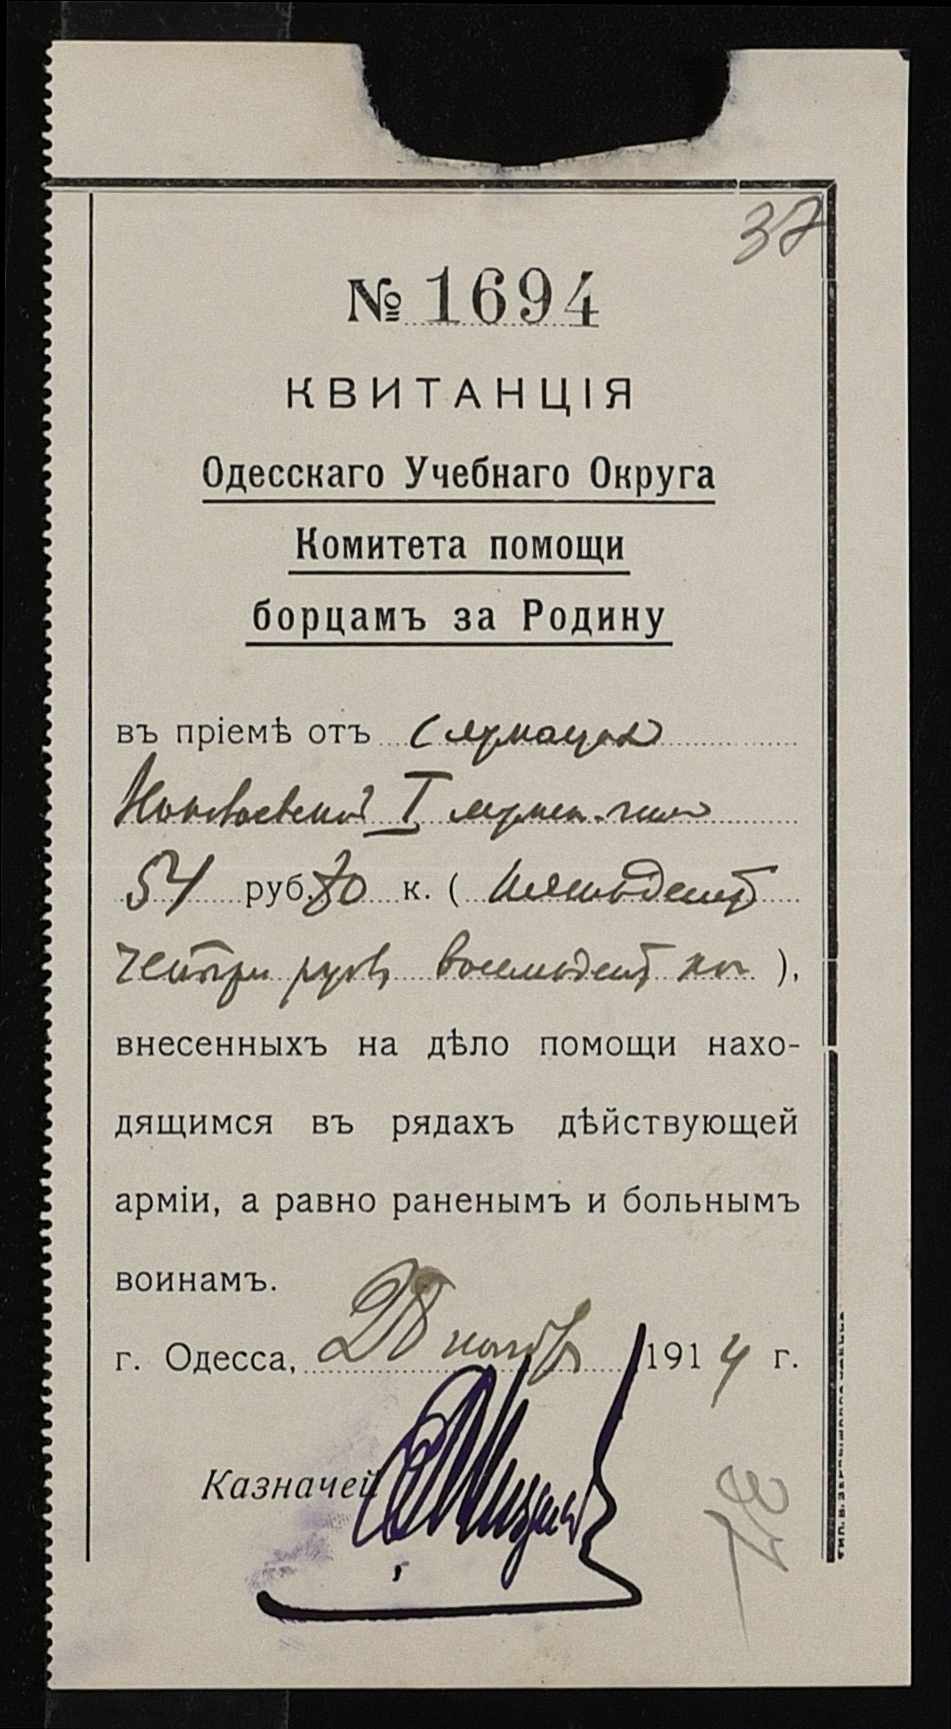 37
№ 1694
КВИТАНЦІЯ
Одесскаго Учебнаго Округа
Комитета помощи
борцамъ за Родину
въ пріемѣ отъ
I
54 руб. 80 к. ( пятьдесят
четыри руб восемьдесят коп ),
внесенныхъ на дѣло помощи нахо-
дящимся въ рядахъ дѣйствующей
арміи, а равно раненымъ и больнымъ
воинамъ.
г. Одесса, 28 ноябр 1914 г.
Казначей
37